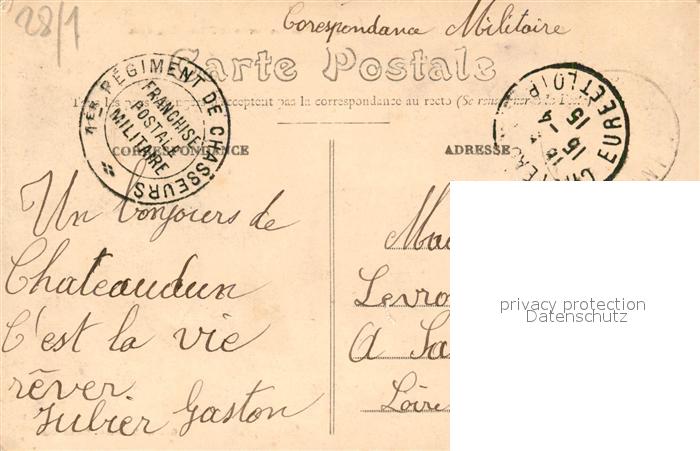 28/1
Corespondance Militaire
Carte Postale
acceptent pas la correspondance au recto (Se
1ER RÉGIMENT DE CHASSEURS
FRANCHISE
POSTALE
MILITAIRE
EURE ET LOIR
15
CORRESPONDANCE
ADRESSE
Un bonjours de
Chateaudun
C'est la vie
rêver
Gaston
Levro
A Sa
Loire
privacy protection
Datenschutz